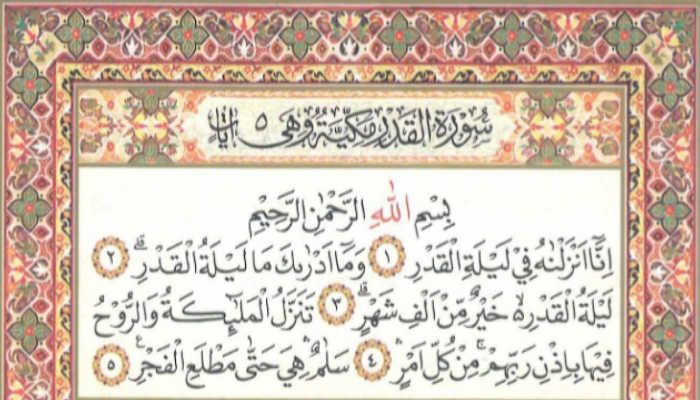 سُوْرَةُ الْقَدْرِ مَكِّيَّةٌ وَهِيَ ٥ اٰيَاتٍ
بِسْمِ اللّٰهِ الرَّحْمٰنِ الرَّحِيْمِ
اِنَّٓا اَنْزَلْنٰهُ فِيْ لَيْلَةِ الْقَدْرِ ١ وَمَٓا اَدْرٰىكَ مَا لَيْلَةُ الْقَدْرِۗ ٢
لَيْلَةُ الْقَدْرِەۙ خَيْرٌ مِّنْ اَلْفِ شَهْرٍۗ ٣ تَنَزَّلُ الْمَلٰٓئِكَةُ وَالرُّوْحُ
فِيْهَا بِاِذْنِ رَبِّهِمْۚ مِنْ كُلِّ اَمْرٍۛ ٤ سَلٰمٌۛ هِيَ حَتّٰى مَطْلَعِ الْفَجْرِ ࣖ ٥